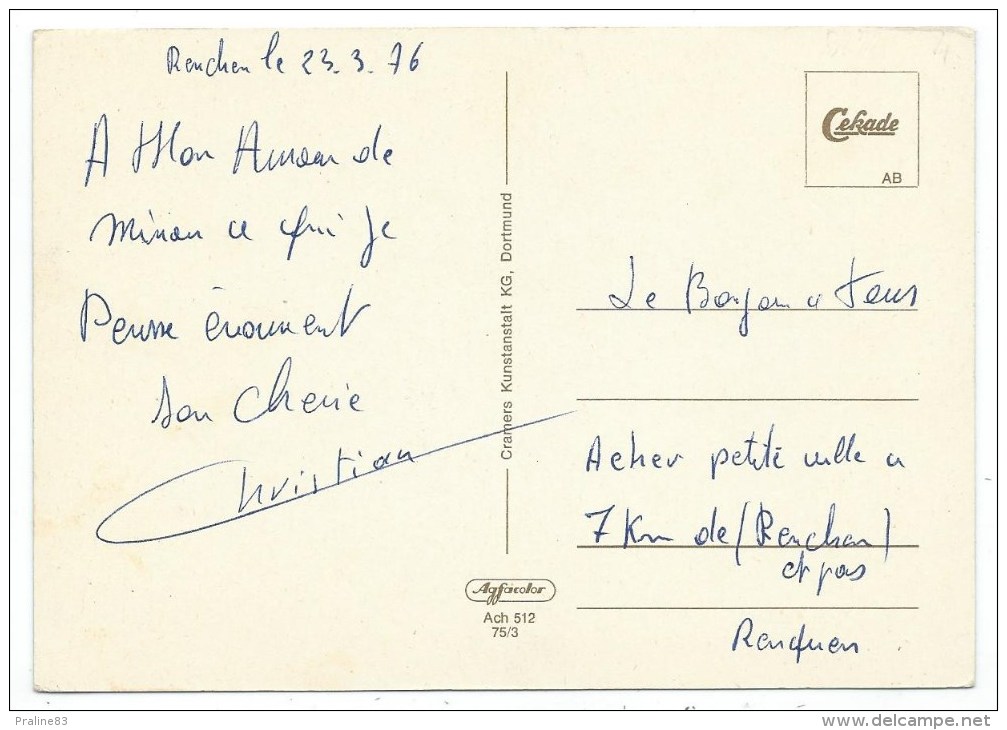 Renchen le 23.3.76
A Mon Amour de
Minou a qui je
Pensse énorment
son Cherie
Christian
Cramers Kunstanstalt KG, Dortmund
Cekade
AB
Le Bonjour a tous
Acher petite ville a
7 Km de (Renchan)
et pas
Renquen
Agfacolor
Ach 512
75/3
Praline83
www.delcampe.net